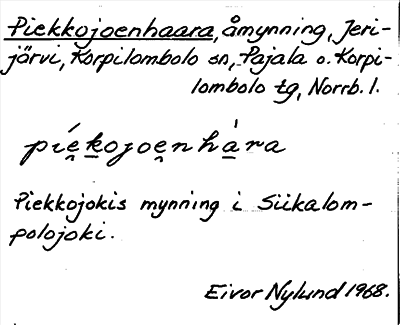 Piekkojoenhaara, åmynning, Jeri-
järvi, Korpilombolo sn, Pajala o. Korpi-
lombolo tg, Norrb. l.
píe̯k̲ojoe̯nhà̲ra
Piekkojokis mynning i Siikalom-
polojoki.
Eivor Nylund 1968.